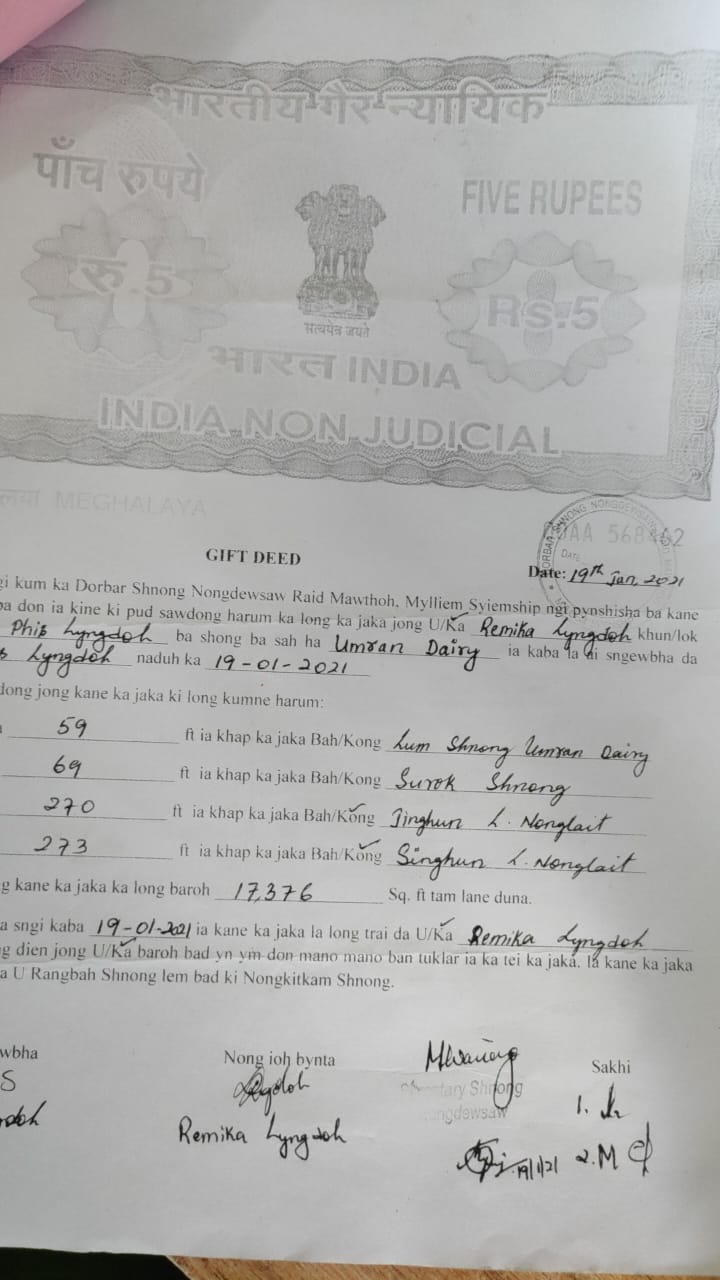 भारतीय गैर न्यायिक
पाँच रुपये
FIVE RUPEES
रु.5
Rs.5
सत्यमेव जयते
भारत INDIA
INDIA NON JUDICIAL
MEGHALAYA
DORBAR SHNONG NONGDEWSAW
AA 568462
DATE
GIFT DEED
Date: 19th Jan, 2021
gi kum ka Dorbar Shnong Nongdewsaw Raid Mawthoh, Mylliem Syiemship ngi pynshisha ba kane
ba don ia kine ki pud sawdong harum ka long ka jaka jong U/Ka Remika Lyngdoh khun/lok
Lyngdoh ba shong ba sah ha Umran Dairy ia kaba la ai sngewbha da
Lyngdoh naduh ka 19-01-2021
dong jong kane ka jaka ki long kumne harum:
59 ft ia khap ka jaka Bah/Kong Lum Shnong Umran Dairy
69 ft ia khap ka jaka Bah/Kong Surok Shnong
270 ft ia khap ka jaka Bah/Kong Jinghun L. Nonglait
273 ft ia khap ka jaka Bah/Kong Singhun L. Nonglait
g kane ka jaka ka long baroh 17,376 Sq. ft tam lane duna.
a sngi kaba 19-01-2021 ia kane ka jaka la long trai da U/Ka Remika Lyngdoh
g dien jong U/Ka baroh bad yn ym don mano mano ban tuklar ia ka tei ka jaka. Ia kane ka jaka
a U Rangbah Shnong lem bad ki Nongkitkam Shnong.
wbha
Nong ioh bynta
Sakhi
Shnong
1.
Remika Lyngdoh
19/1/21
2. M